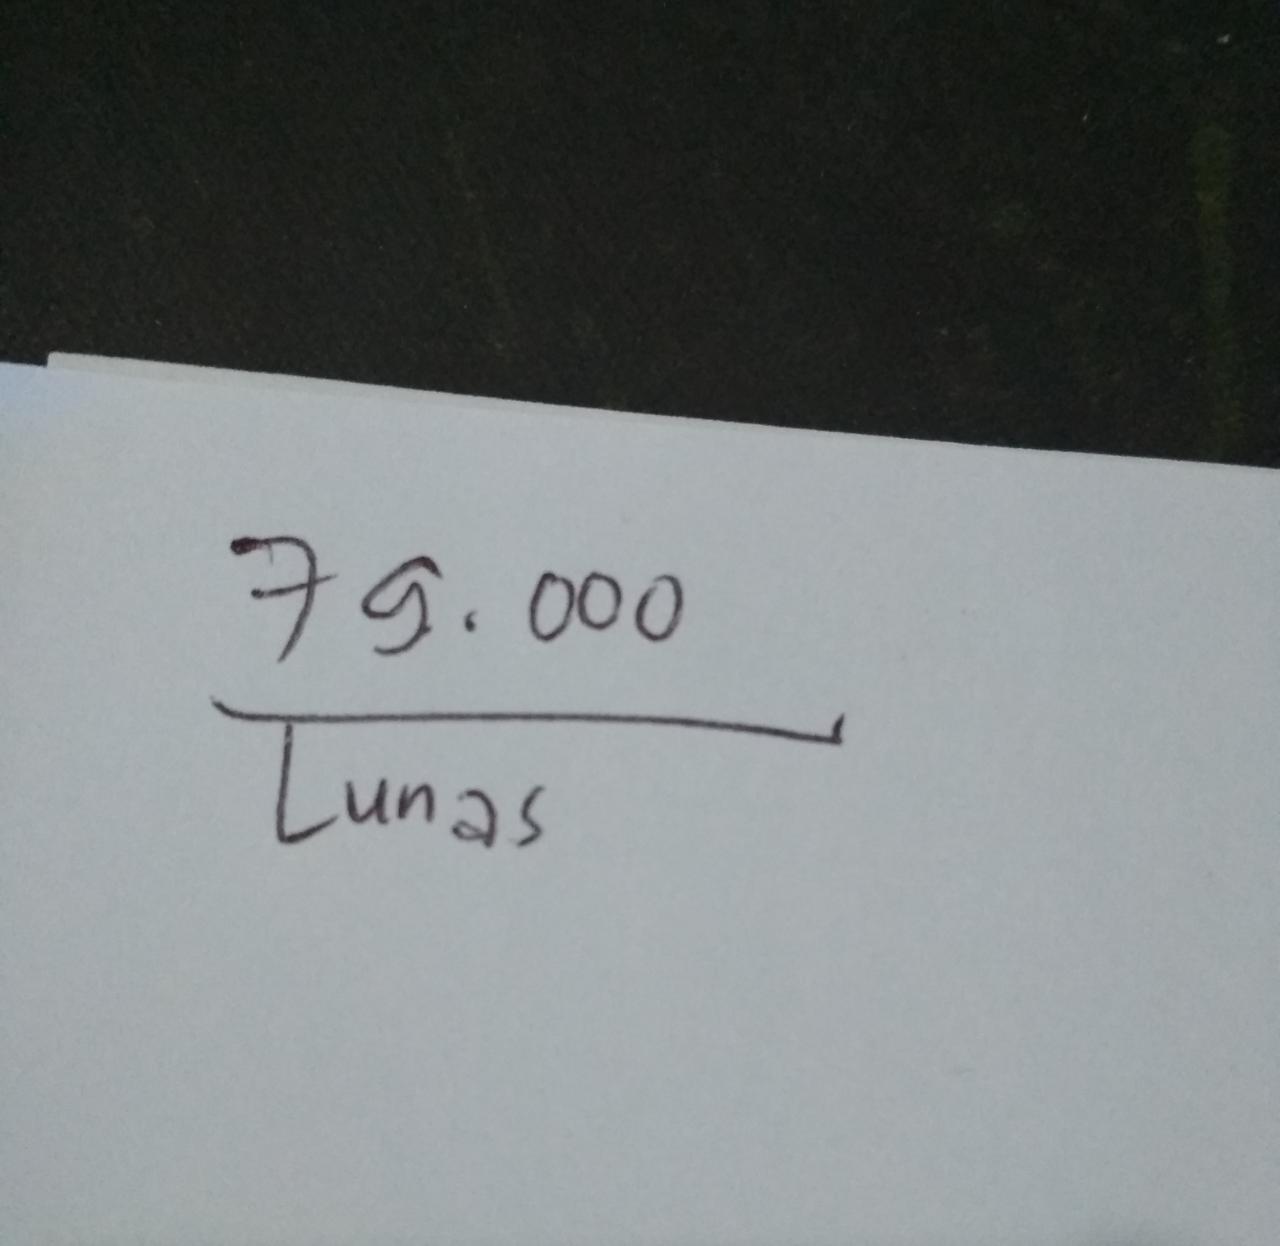 79.000
Lunas